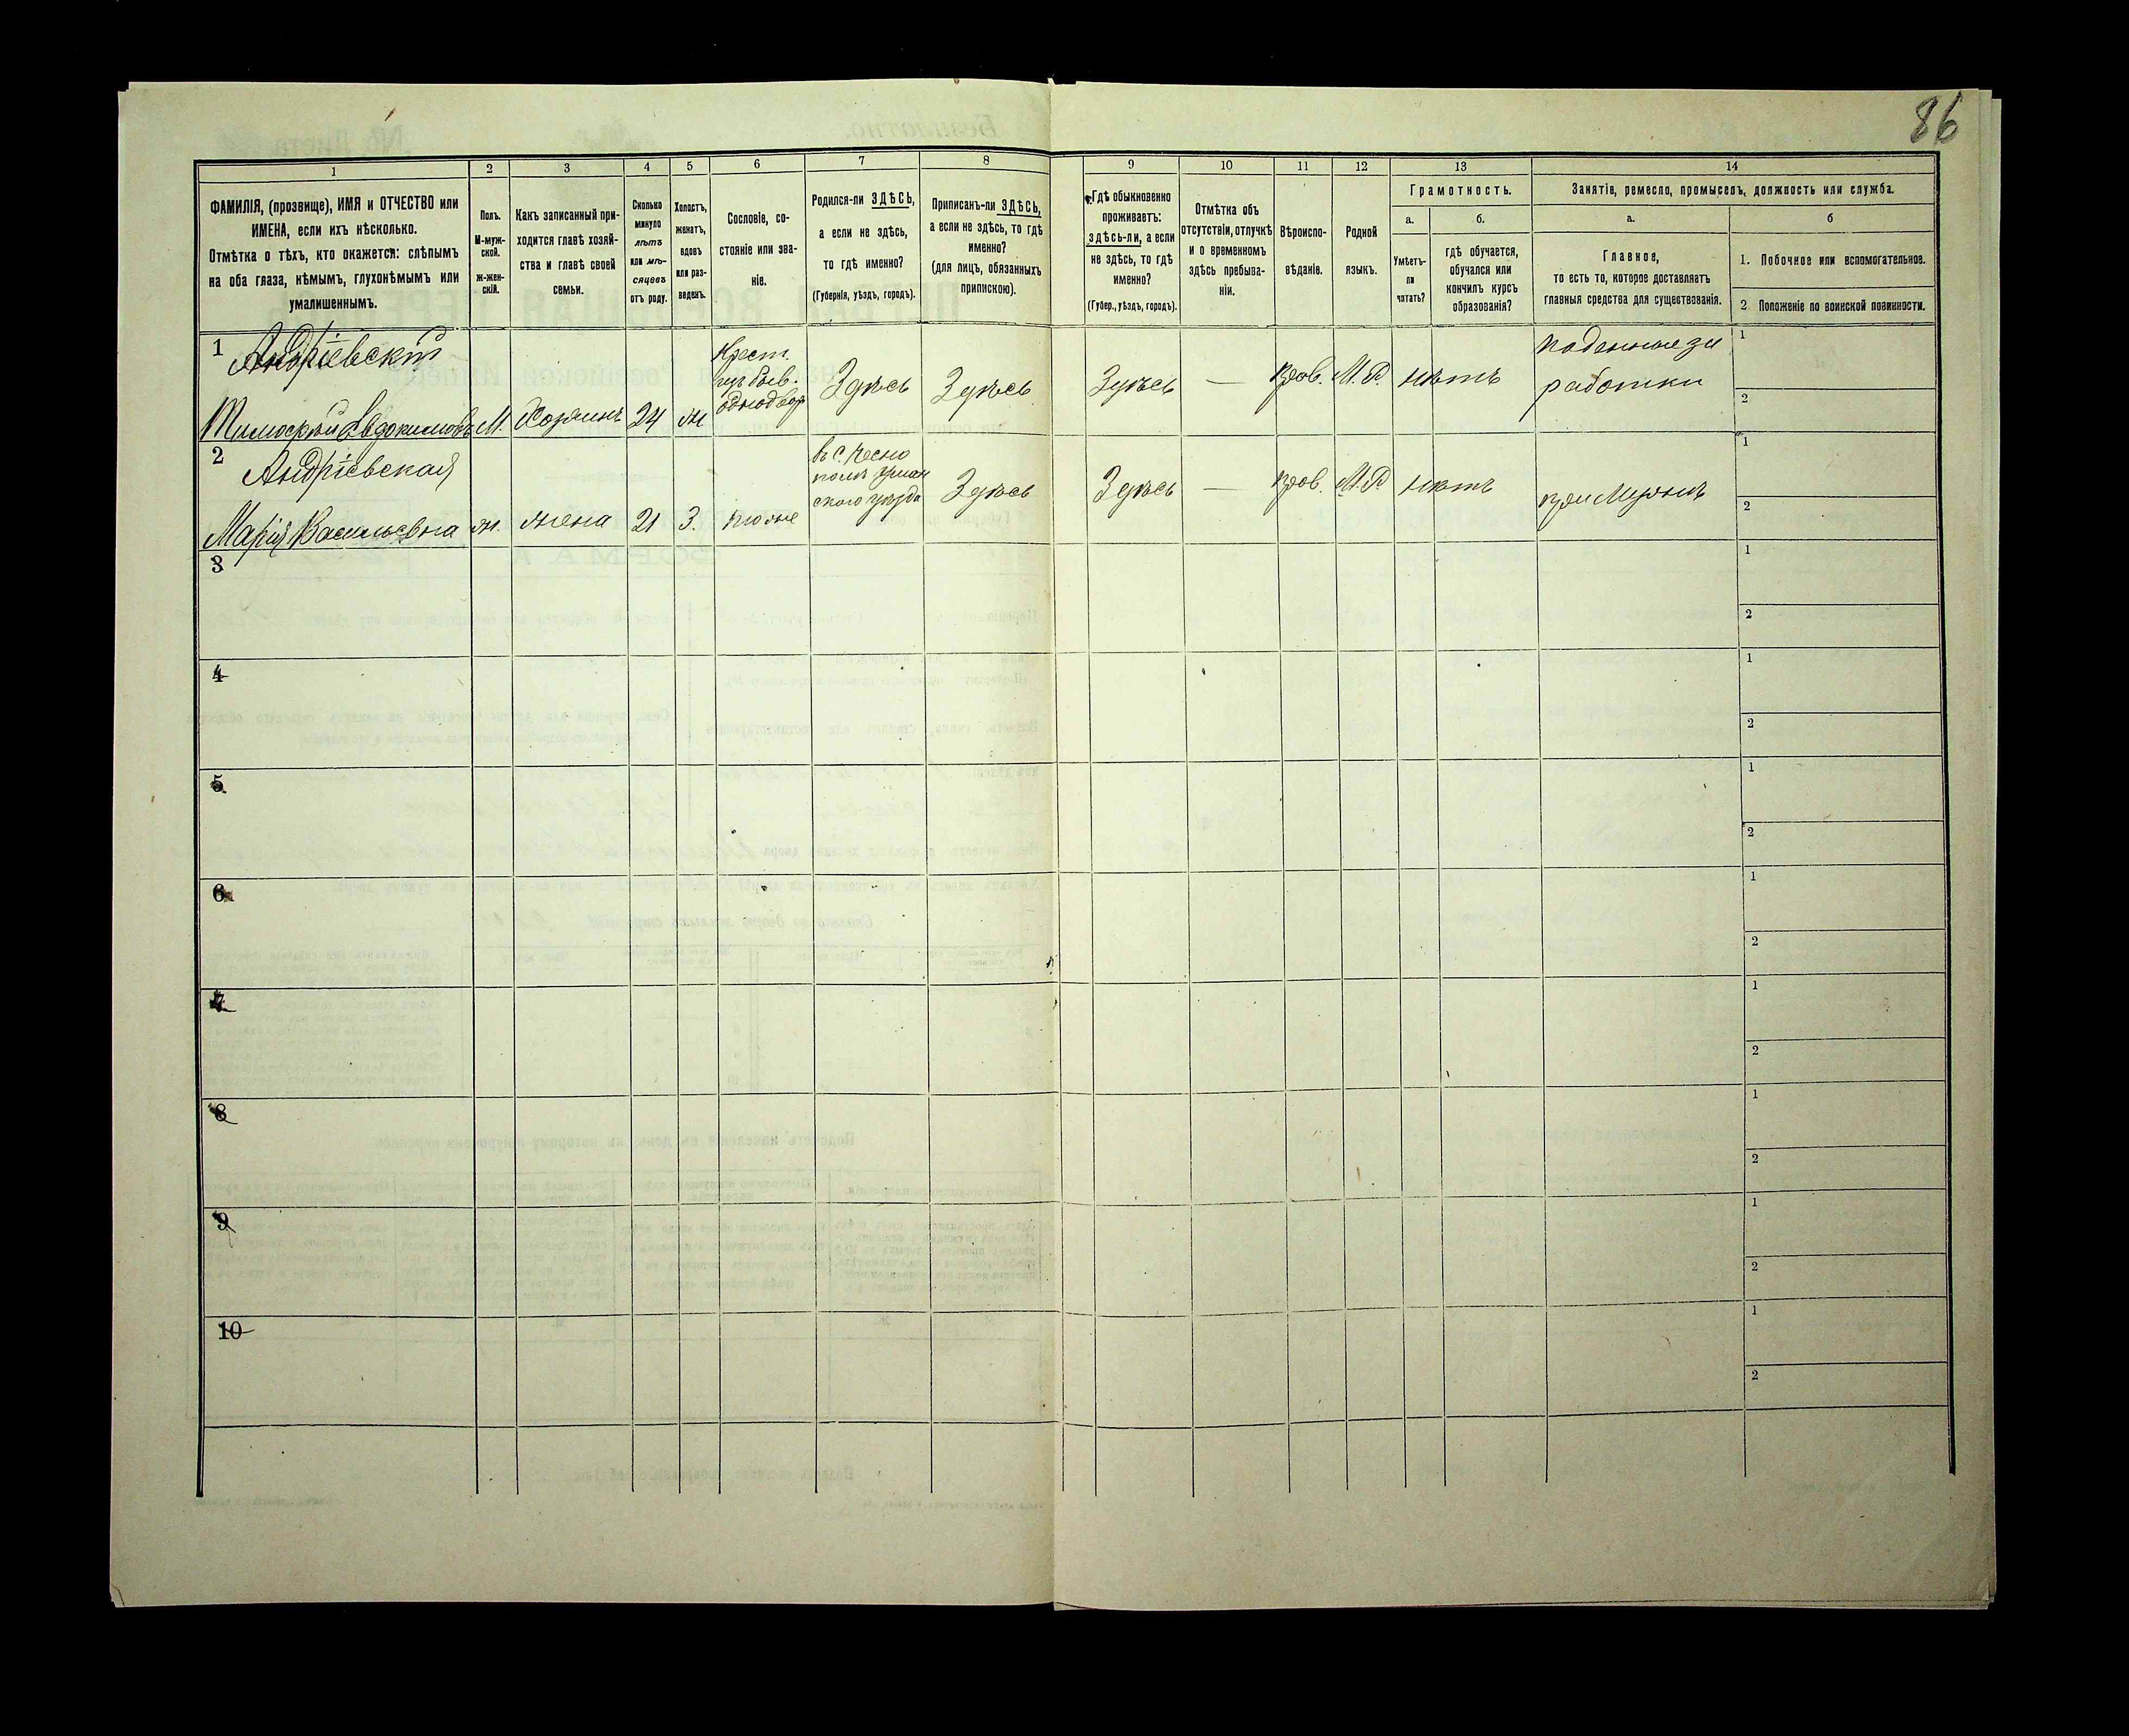 86
1
2
3
4
5
6
7
8
9
10
11
12
13
14
ФАМИЛІЯ, (прозвище), ИМЯ и ОТЧЕСТВО или
ИМЕНА, если ихъ нѣсколько.
Отмѣтка о тѣхъ, кто окажется: слѣпымъ
на оба глаза, нѣмымъ, глухонѣмымъ или
умалишеннымъ.
Полъ.
М-муж-
ской.
ж-жен-
скій.
Какъ записанный при-
ходится главѣ хозяй-
ства и главѣ своей
семьи.
Сколько
минуло
лѣтъ
или мѣ-
сяцевъ
отъ роду.
Холостъ,
женатъ,
вдовъ
или раз-
веденъ.
Сословіе, со-
стояніе или зва-
ніе.
Родился-ли ЗДѢСЬ,
а если не здѣсь,
то гдѣ именно?
(Губернія, уѣздъ, городъ).
Приписанъ-ли ЗДѢСЬ,
а если не здѣсь, то гдѣ
именно?
(для лицъ, обязанныхъ
припискою).
Гдѣ обыкновенно
проживаетъ:
здѣсь-ли, а если
не здѣсь, то гдѣ
именно?
(Губер., уѣздъ, городъ).
Отмѣтка объ
отсутствіи, отлучкѣ
и о временномъ
здѣсь пребыва-
ніи.
Вѣроиспо-
вѣданіе.
Родной
языкъ.
Грамотность.
а.
б.
Умѣетъ-
ли
читать?
гдѣ обучается,
обучался или
кончилъ курсъ
образованія?
Занятіе, ремесло, промыселъ, должность или служба.
а.
б
Главное,
то есть то, которое доставляетъ
главныя средства для существованія.
1. Побочное или вспомогательное.
2. Положеніе по воинской повинности.
1
Андріевскій
Тимофѣй Евдокимовъ
М.
Хозяинъ
24
ж
Крест.
изъ быв.
однодвор
Здѣсь
Здѣсь
Здѣсь
—
Прав.
М.Р.
нѣтъ
поденные за
работки
1
2
2
Андріевская
Марія Васильевна
ж.
жена
21
З.
тоже
въ с.
Уман
скаго уѣзда
Здѣсь
Здѣсь
—
Прав.
М.Р
нѣтъ
при мужѣ
1
2
3
1
2
4
1
2
5
1
2
6
1
2
7
1
2
8
1
2
9
1
2
10
1
2